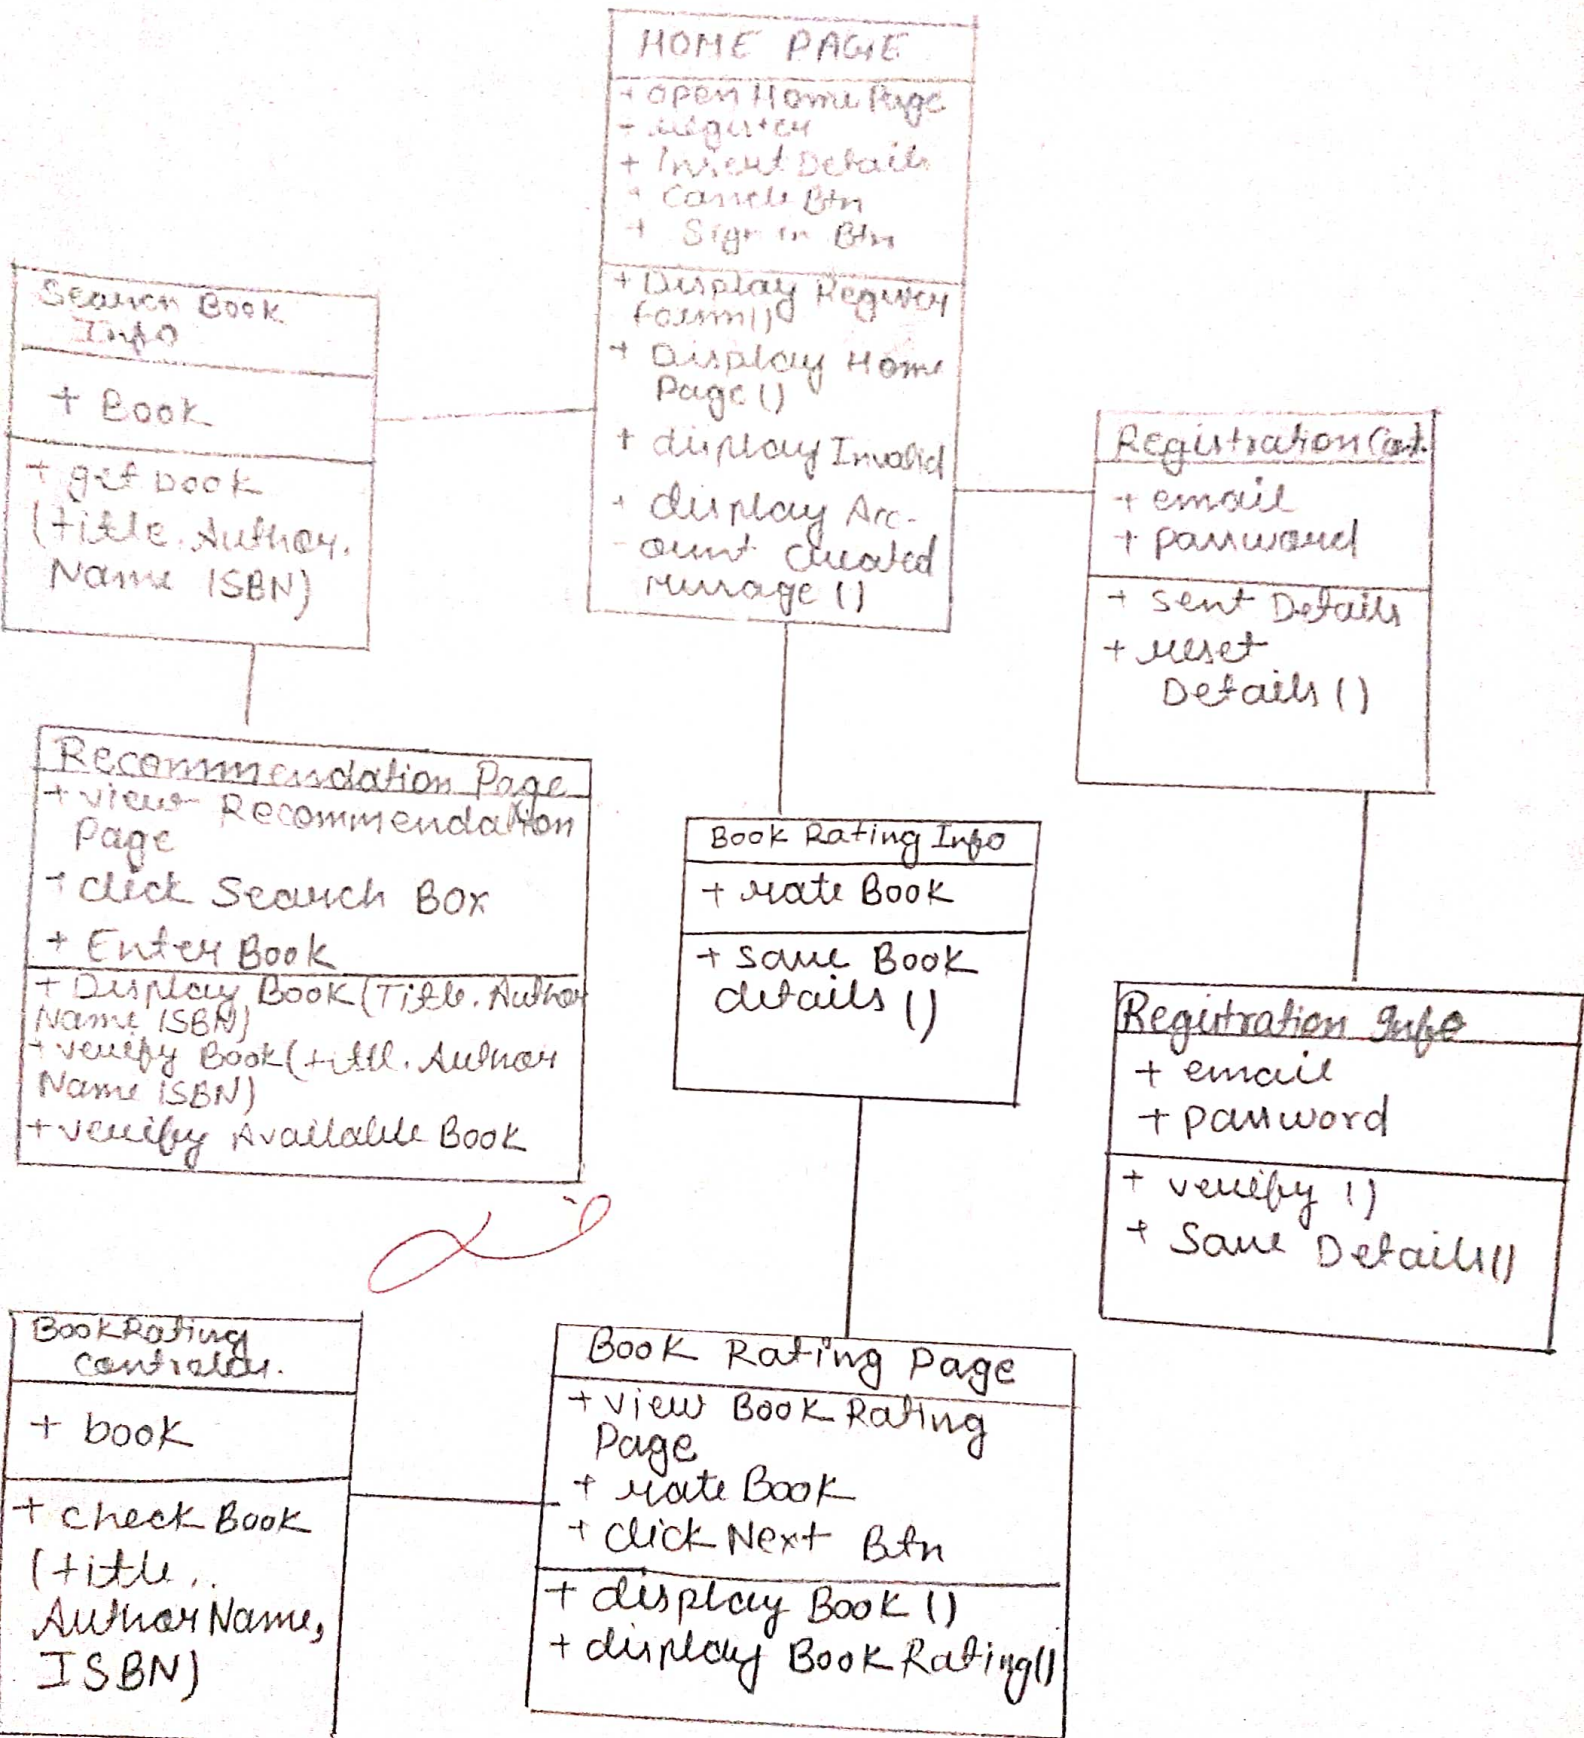 HOME PAGE
+ open Home Page
- register
+ Insert Details
+ Cancle Btn
+ Sign in Btn
+ Display Register
form()
+ Display Home
Page ()
+ display Invalid
+ display Acc-
- ount created
message ()
Search Book
Info
+ Book
+ get book
(title. Author.
Name ISBN)
Registration Cont.
+ email
+ password
+ sent Details
+ reset
Details ()
Recommendation Page
+ view Recommendation
Page
+ click Search Box
+ Enter Book
+ Display Book (Title. Author
Name ISBN)
+ verify Book (titl. Author
Name ISBN)
+ verify Available Book
Book Rating Info
+ rate Book
+ save Book
details ()
Registration Info
+ email
+ password
+ verify ()
+ Save Details()
Book Rating
Controler.
+ book
+ check Book
(title..
Author Name,
ISBN)
Book Rating Page
+ view Book Rating
Page
+ rate Book
+ click Next Btn
+ display Book ()
+ display Book Rating()